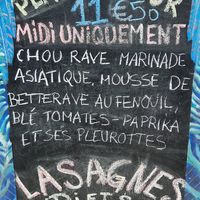 11€50
MIDI UNIQUEMENT
CHOU RAVE MARINADE
ASIATIQUE, MOUSSE DE
BETTERAVE AU FENOUIL,
BLÉ TOMATES-PAPRIKA
ET SES PLEUROTTES
LASAGNES